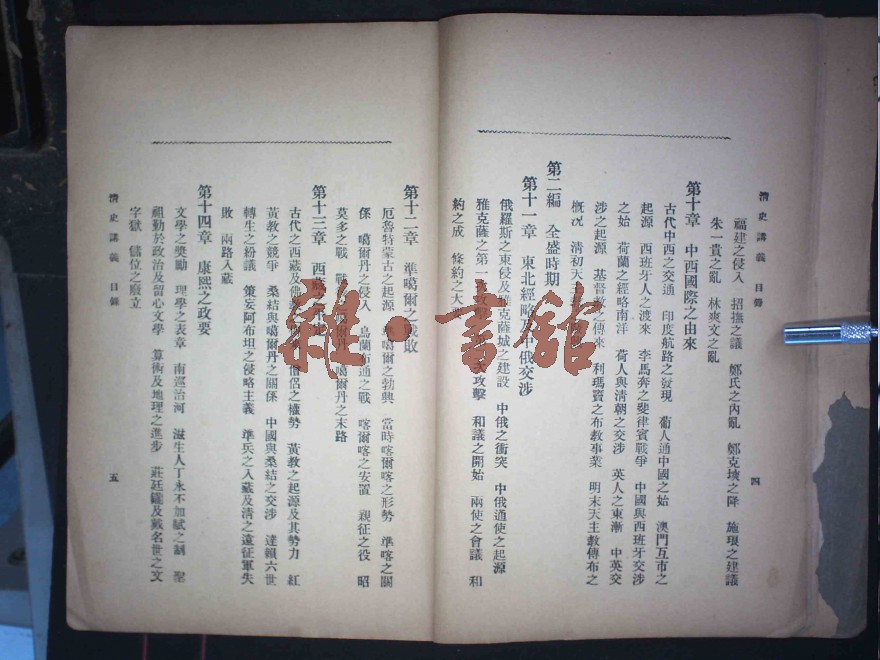 清史講義 目錄
四
福建之侵入 招撫之議 鄭氏之內亂 鄭克塽之降 施琅之建議
朱一貴之亂 林爽文之亂
第十章 中西國際之由來
古代中西之交通 印度航路之發現 葡人通中國之始 澳門互市之
起源 西班牙人之渡來 李馬奔之斐律賓戰爭 中國與西班牙交涉
之始 荷蘭之經略南洋 荷人與清朝之交涉 英人之東漸 中英交
涉之起源 基督教之傳來 利瑪竇之布教事業 明末天主教傳布之
概况 清初天主
第二編 全盛時期
第十一章 東北經略及中俄交涉
俄羅斯之東侵及雅克薩城之建設 中俄之衝突 中俄通使之起源
雅克薩之第一次攻擊 攻擊 和議之開始 兩使之會議 和
約之成 條約之大
第十二章 準噶爾之戰敗
厄魯特蒙古之起源 噶爾之勃興 當時喀爾喀之形勢 準喀之關
係 噶爾丹之侵入 烏蘭布通之戰 喀爾喀之安置 親征之役 昭
莫多之戰 戰 噶爾丹之末路
第十三章 西藏
古代之西藏及佛教 僧侶之權勢 黃教之起源及其勢力 紅
黃教之競爭 桑結與噶爾丹之關係 中國與桑結之交涉 達賴六世
轉生之紛議 策妄阿布坦之侵略主義 準兵之入藏及清之遠征軍失
敗 兩路入藏
第十四章 康熙之政要
文學之獎勵 理學之表章 南巡治河 滋生人丁永不加賦之制 聖
祖勤於政治及留心文學 算術及地理之進步 莊廷鑨及戴名世之文
字獄 儲位之廢立
清史講義 目錄
五
雜·書館